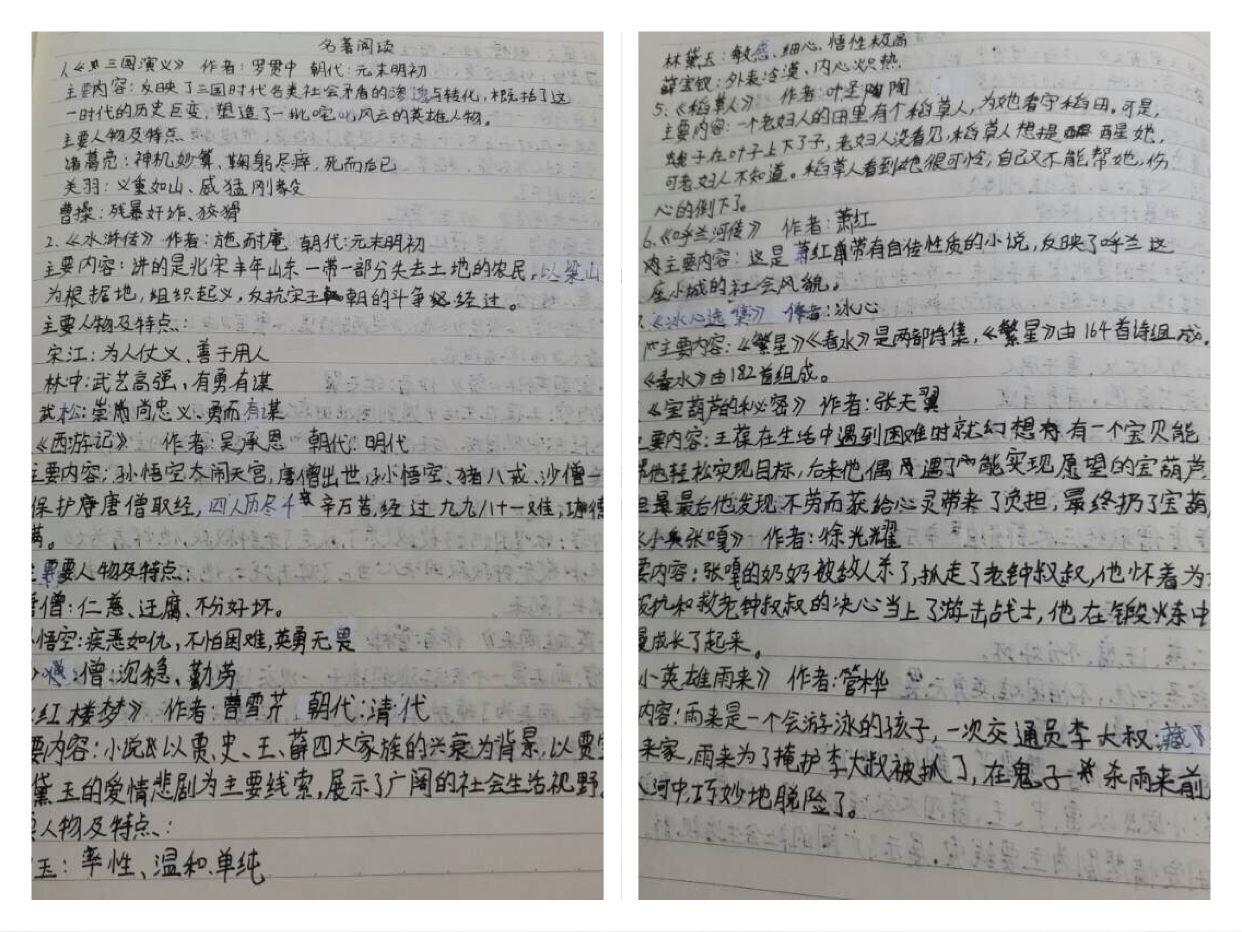 名著阅读
《三国演义》 作者:罗贯中 朝代:元末明初
主要内容:反映了三国时代各类社会矛盾的渗透与转化,概括了这
一时代的历史巨变,塑造了一批咤叱风云的英雄人物。
主要人物及特点
诸葛亮:神机妙算、鞠躬尽瘁,死而后已
关羽:义重如山、威猛刚毅
曹操:残暴奸诈、狡猾
2、《水浒传》 作者:施耐庵 朝代:元末明初
主要内容:讲的是北宋末年山东一带一部分失去土地的农民,以梁山
为根据地,组织起义,反抗宋王朝的斗争经过。
主要人物及特点:
宋江:为人仗义、善于用人
林中:武艺高强、有勇有谋
武松:崇尚忠义、勇而有谋
《西游记》 作者:吴承恩 朝代:明代
主要内容:孙悟空大闹天宫,唐僧出世,孙悟空、猪八戒、沙僧一
保护唐僧取经,四人历尽千辛万苦,经过九九八十一难,功德
满。
要人物及特点:
僧:仁慈、迂腐、不分好坏。
悟空:疾恶如仇,不怕困难,英勇无畏
僧:沉稳、勤劳
《红楼梦》 作者:曹雪芹 朝代:清代
要内容:小说以贾、史、王、薛四大家族的兴衰为背景,以贾宝
黛玉的爱情悲剧为主要线索,展示了广阔的社会生活视野。
人物及特点:
玉:率性、温和、单纯
林黛玉:敏感、细心、悟性极高
薛宝钗:外表冷漠、内心炽热
5、《稻草人》 作者:叶圣陶
主要内容:一个老妇人的田里有个稻草人,为她看守稻田。可是,
蛾子在叶子上下了子,老妇人没看见,稻草人想提醒她,
可老妇人不知道。稻草人看到她很可怜,自己又不能帮她,伤
心的倒下了。
6、《呼兰河传》 作者:萧红
主要内容:这是萧红带有自传性质的小说,反映了呼兰这
座小城的社会风貌。
《冰心选集》 作者:冰心
主要内容:《繁星》《春水》是两部诗集,《繁星》由164首诗组成。
《春水》由182首组成。
《宝葫芦的秘密》 作者:张天翼
要内容:王葆在生活中遇到困难时就幻想有一个宝贝能
他轻松实现目标,后来他偶遇了能实现愿望的宝葫芦,
但最后他发现不劳而获给心灵带来了负担,最终扔了宝葫
《小兵张嘎》 作者:徐光耀
要内容:张嘎的奶奶被敌人杀了,抓走了老钟叔叔,他怀着为
抗和救老钟叔叔的决心当上了游击战士,他在锻炼中
成长了起来。
小英雄雨来》 作者:管桦
内容:雨来是一个会游泳的孩子,一次交通员李大叔藏
来家,雨来为了掩护李大叔被抓了,在鬼子杀雨来前
河中,巧妙地脱险了。